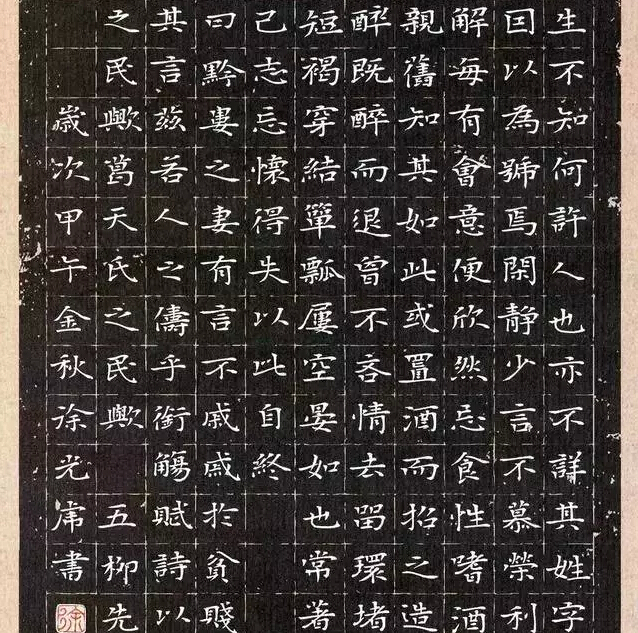 生不知何許人也亦不詳其姓字
囙以為號焉閑靜少言不慕榮利
解每有會意便欣然忘食性嗜酒
親舊知其如此或置酒而招之造
醉既醉而退曾不吝情去留環堵
短褐穿結簞瓢屢空晏如也常著
己志忘懷得失以此自終
曰黔婁之妻有言不戚戚於貧賤
其言茲若人之儔乎銜觴賦詩以
之民歟葛天氏之民歟 五柳先
歲次甲午金秋徐光書
徐